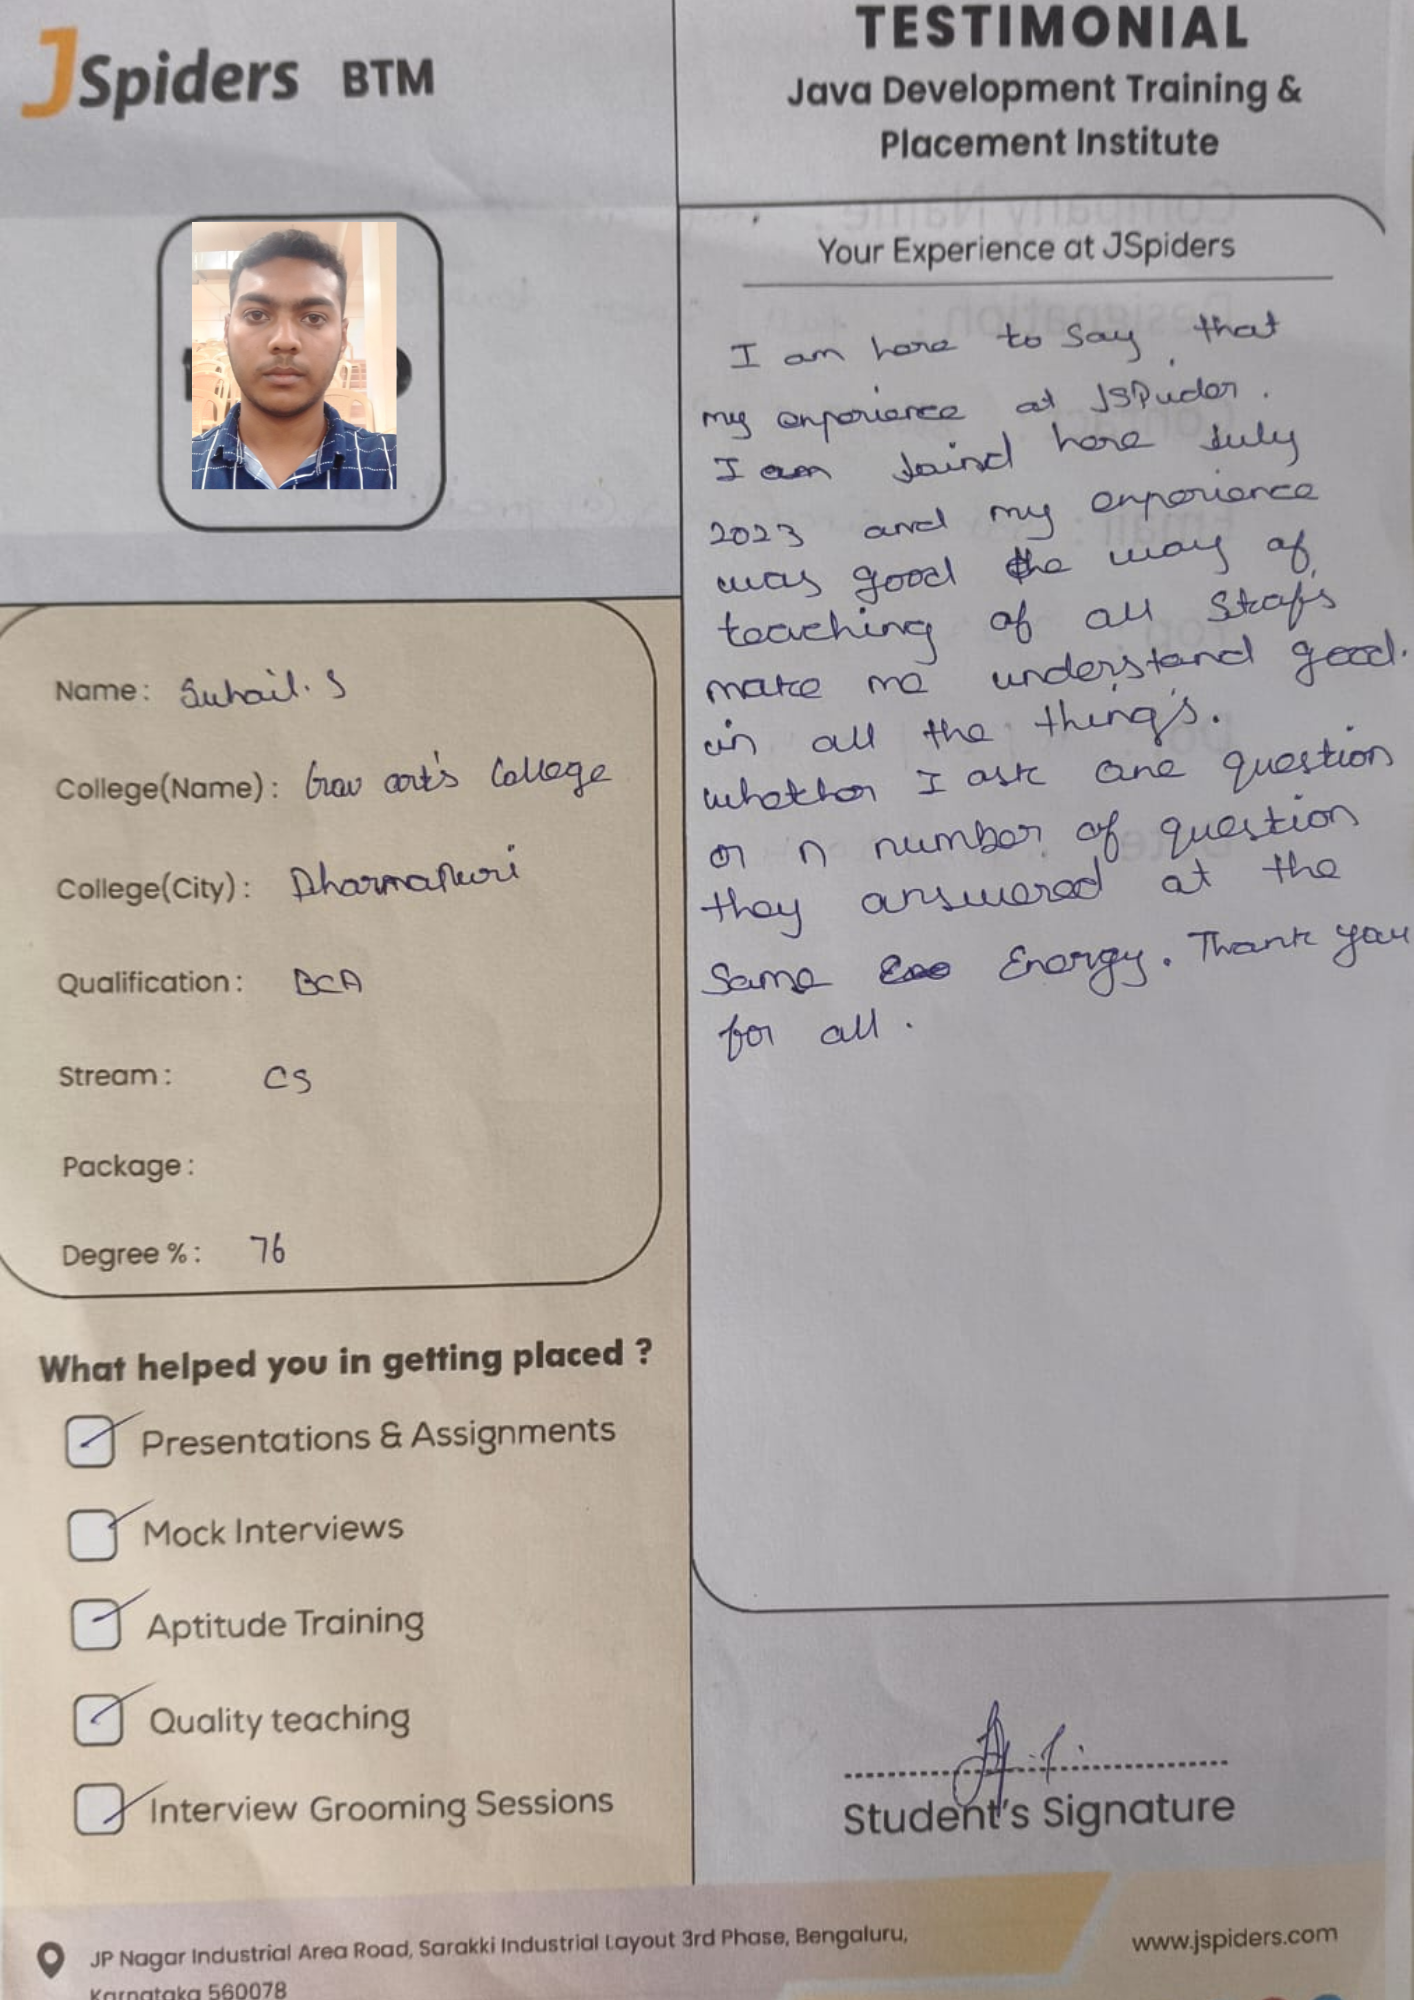 JSpiders BTM
TESTIMONIAL
Java Development Training &
Placement Institute
Your Experience at JSpiders
I am here to say, that
my experience at JSpider.
I am Joind here July
2023 and my experience
was good the way of
teaching of all Staf's
make me understand good.
in all the thing's.
whether I ask one question
or n number of question
they answered at the
Same Energy. Thank you
for all.
Name: Suhail. S
College(Name): Gov art's College
College(City): Dharmapuri
Qualification: BCA
Stream: CS
Package:
Degree %: 76
What helped you in getting placed ?
Presentations & Assignments
Mock Interviews
Aptitude Training
Quality teaching
Interview Grooming Sessions
Student's Signature
JP Nagar Industrial Area Road, Sarakki Industrial Layout 3rd Phase, Bengaluru,
Karnataka 560078
www.jspiders.com